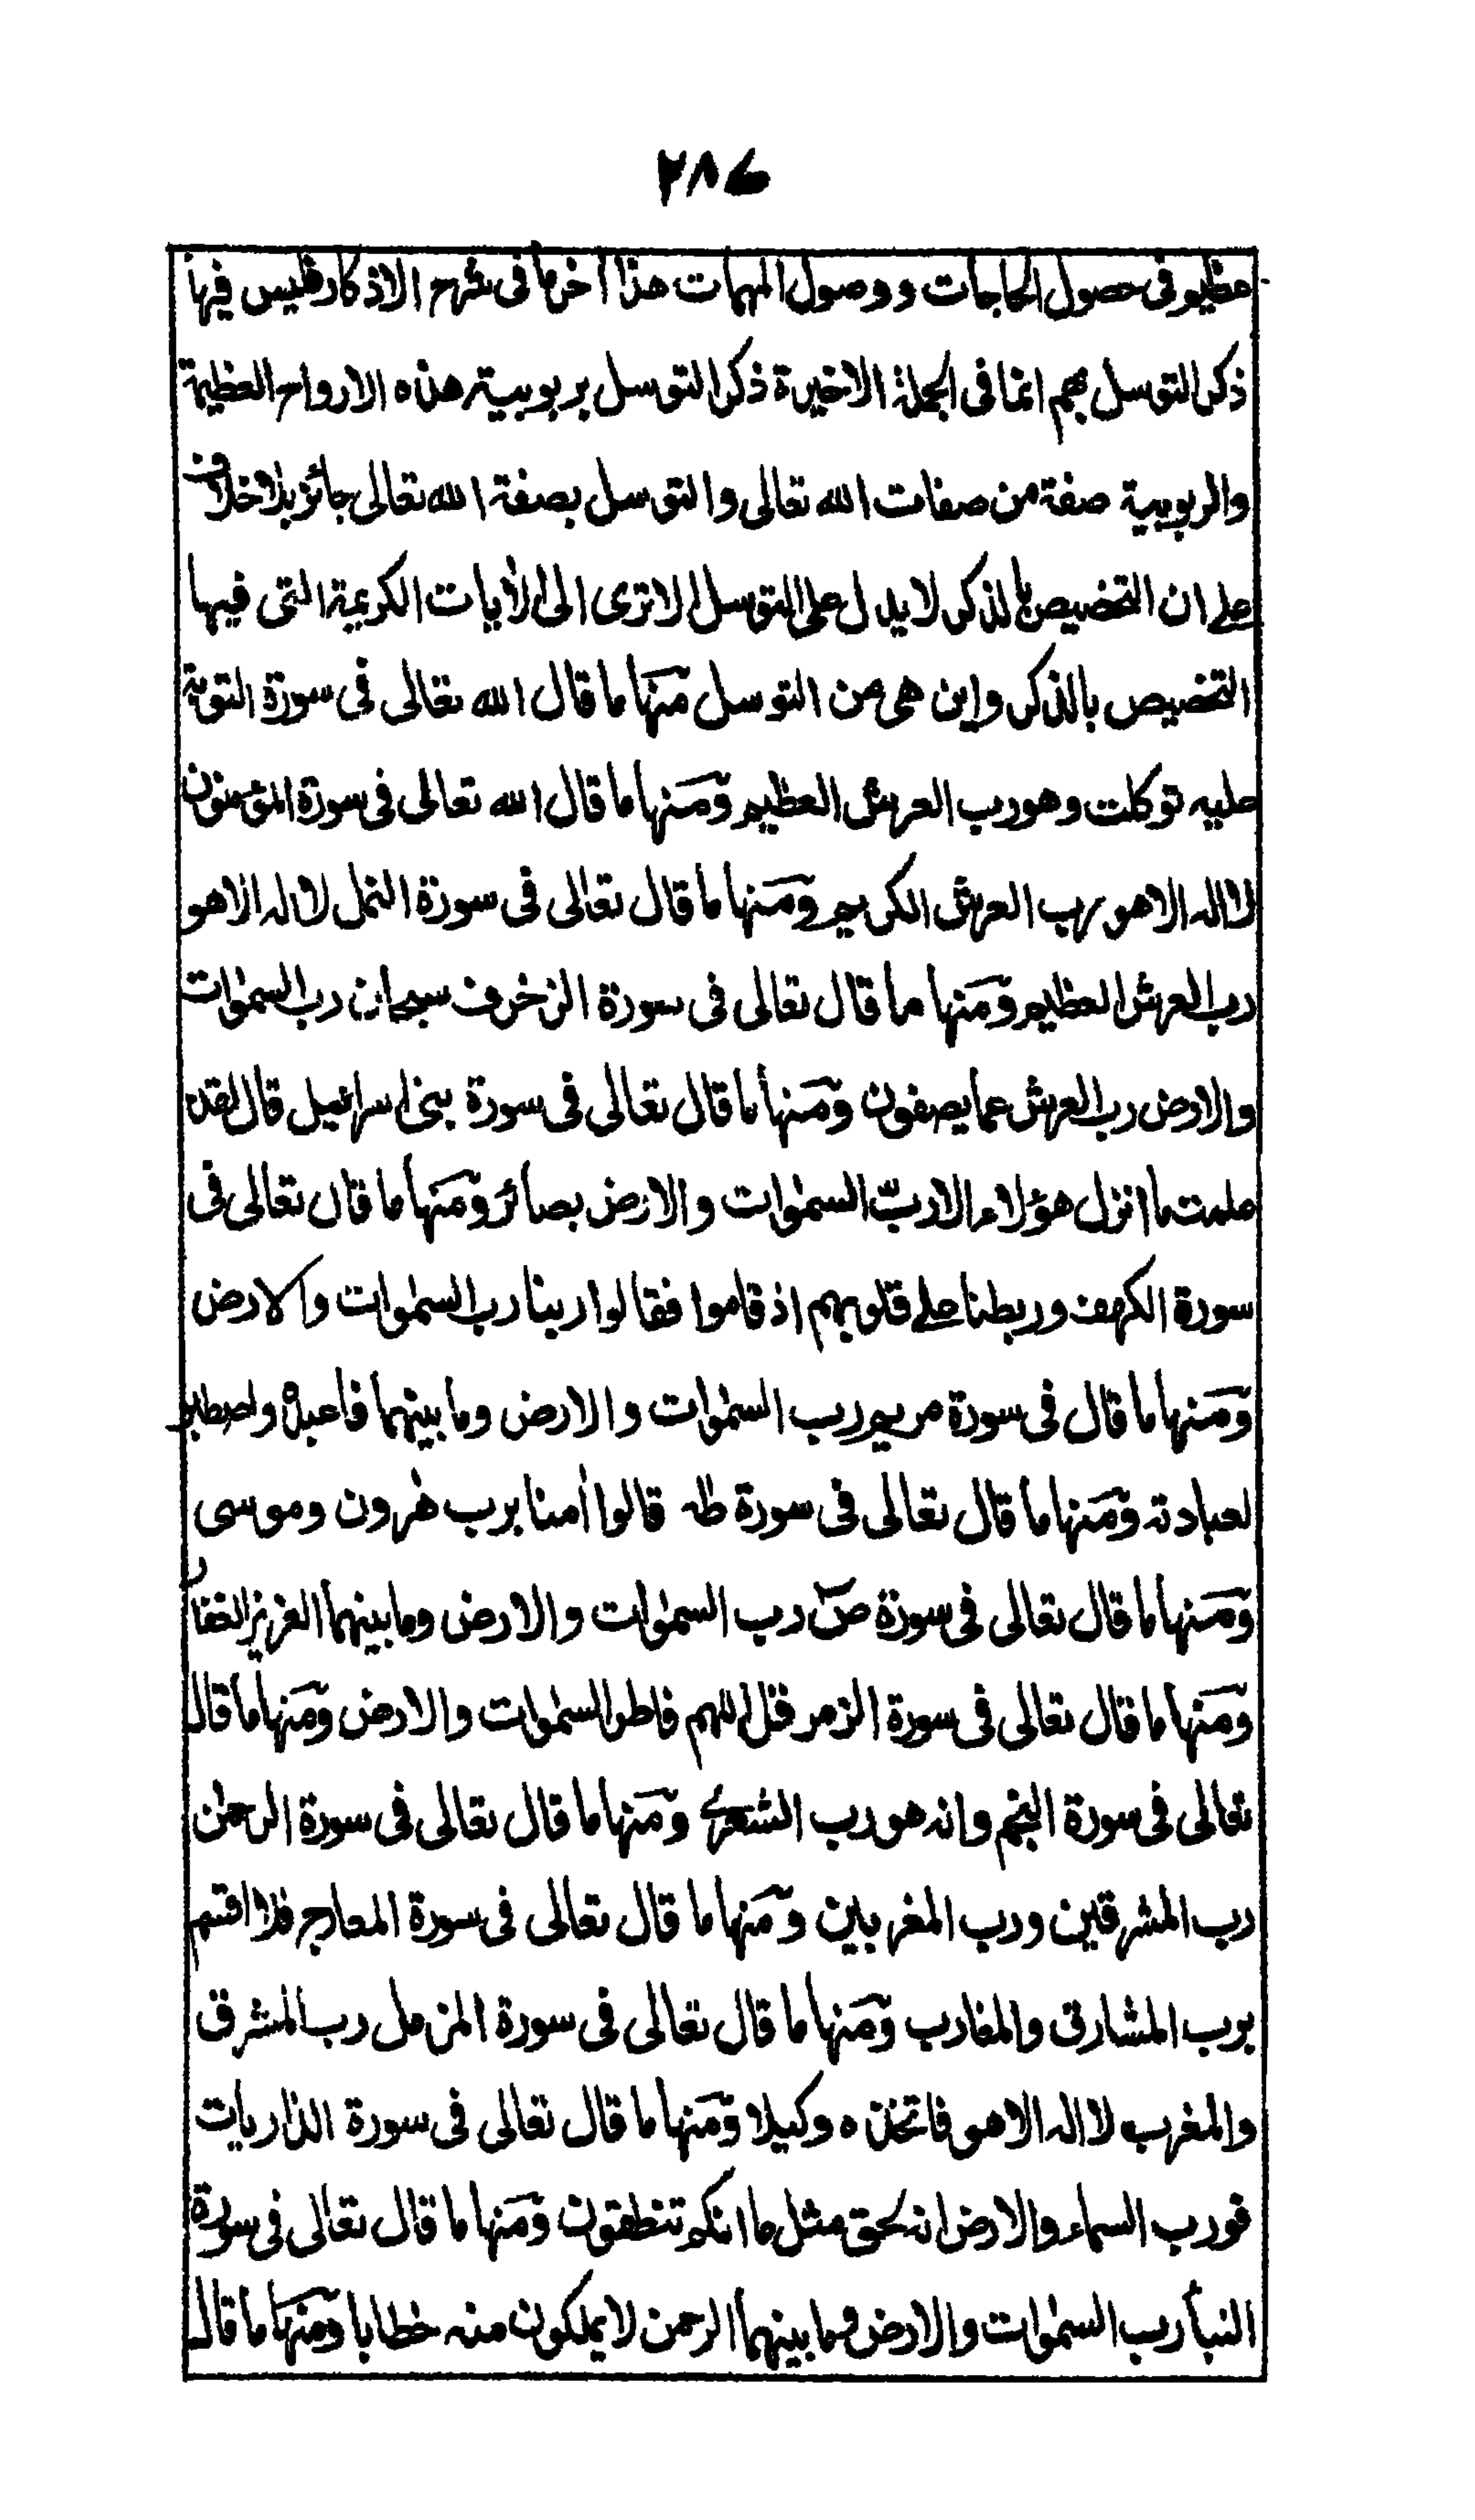 ٢٨٤
عظيم فى حصول الحاجات ووصول المهمات هذا آخر ما فى شرح الاذكار فليس فيها
ذكر التوسل بهم انما فى الجملة الاخيرة ذكر التوسل بربوبية هذه الارواح العظيمة
والربوبية صفة من صفات الله تعالى والتوسل بصفة الله تعالى جائز بلا خلاف
على ان التخصيص بالذكر لا يدل على التوسل الا ترى الى الأيات الكريمة التى فيها
التخصيص بالذكر واين هى من التوسل منها ما قال الله تعالى فى سورة التوبة
عليه توكلت وهو رب العرش العظيم ومنها ما قال الله تعالى فى سورة المؤمنون
لا اله الا هو رب العرش الكريم ومنها ما قال تعالى فى سورة النمل لا اله الا هو
رب العرش العظيم ومنها ما قال تعالى فى سورة الزخرف سبحان رب السمٰوات
والارض رب العرش عما يصفون ومنها ما قال تعالى فى سورة بنى اسرائيل قال لقد
علمت ما انزل هؤلاء الا ربّ السمٰوات والارض بصائر ومنها ما قال تعالى فى
سورة الكهف وربطنا على قلوبهم اذ قاموا فقالوا ربنا رب السمٰوات والارض
ومنها ما قال فى سورة مريم رب السمٰوات والارض وما بينهما فاعبده واصطبر
لعبادته ومنها ما قال تعالى فى سورة طه قالوا أمنا برب هٰرون وموسى
ومنها ما قال تعالى فى سورة صٓ رب السمٰوات والارض وما بينهما العزيز الغفار
ومنها ما قال تعالى فى سورة الزمر قل اللهم فاطر السمٰوات والارض ومنها ما قال
تعالى فى سورة النجم وانه هو رب الشعرى ومنها ما قال تعالى فى سورة الرحمٰن
رب المشرقين ورب المغربين ومنها ما قال تعالى فى سورة المعارج فلا اقسم
برب المشارق والمغارب ومنها ما قال تعالى فى سورة المزمل رب المشرق
والمغرب لا اله الا هو فاتخذه وكيلا ومنها ما قال تعالى فى سورة الذاريات
فورب السماء والارض انه لحق مثل ما انكم تنطقون ومنها ما قال تعالى فى سورة
النبأ رب السمٰوات والارض وما بينهما الرحمن لا يملكون منه خطابا ومنها ما قال